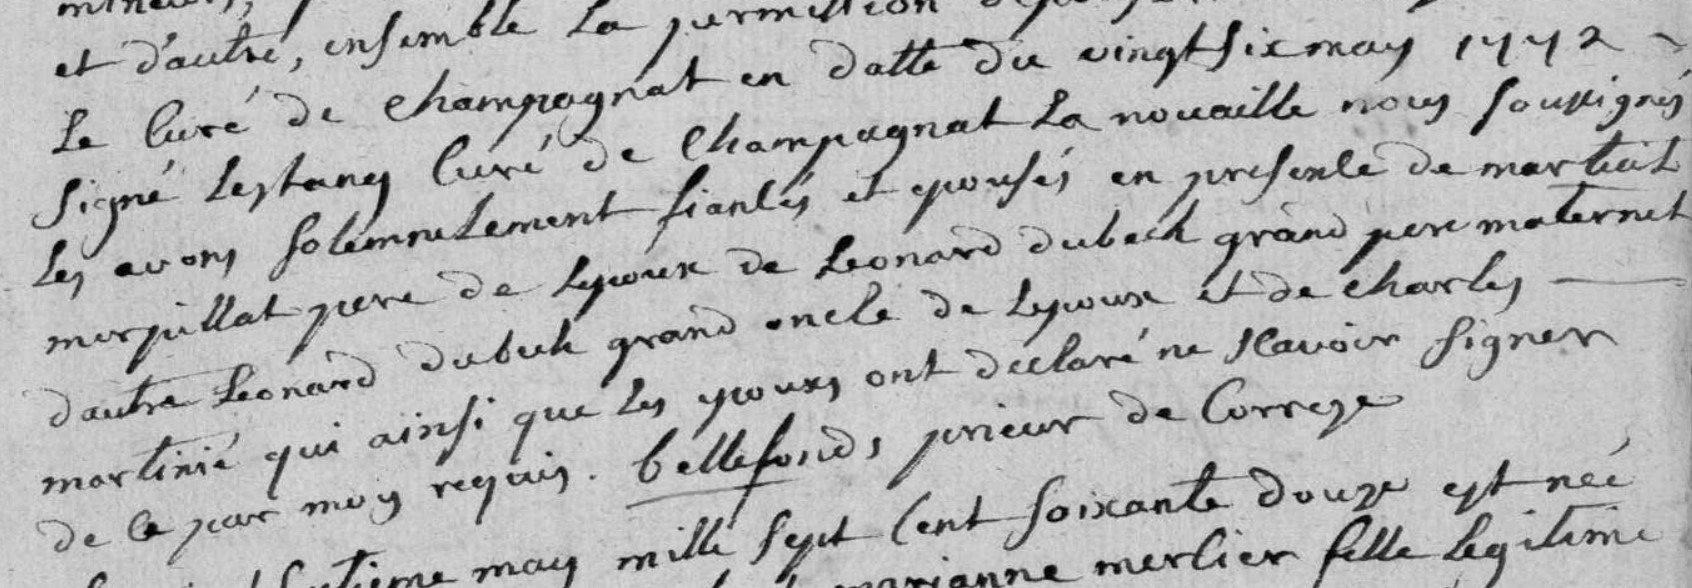 et d'autre, ensemble la permission
le curé de Champagnat en datte du vingt six may 1772
signé Lestang curé de Champagnat la nouaille nous soussignés
les avons solemnelement fiancés et epousés en presence de martial
merpillat pere de lepoux de Leonard dubech grand pere maternel
dautre Leonard dubech grand oncle de lepoux et de charles
martinie qui ainsi que les epoux ont declaré ne scavoir signer
de ce par moy requis. bellefond, prieur de Correze
may mille sept cent soixante douze est neé
marianne merlier fille legitime